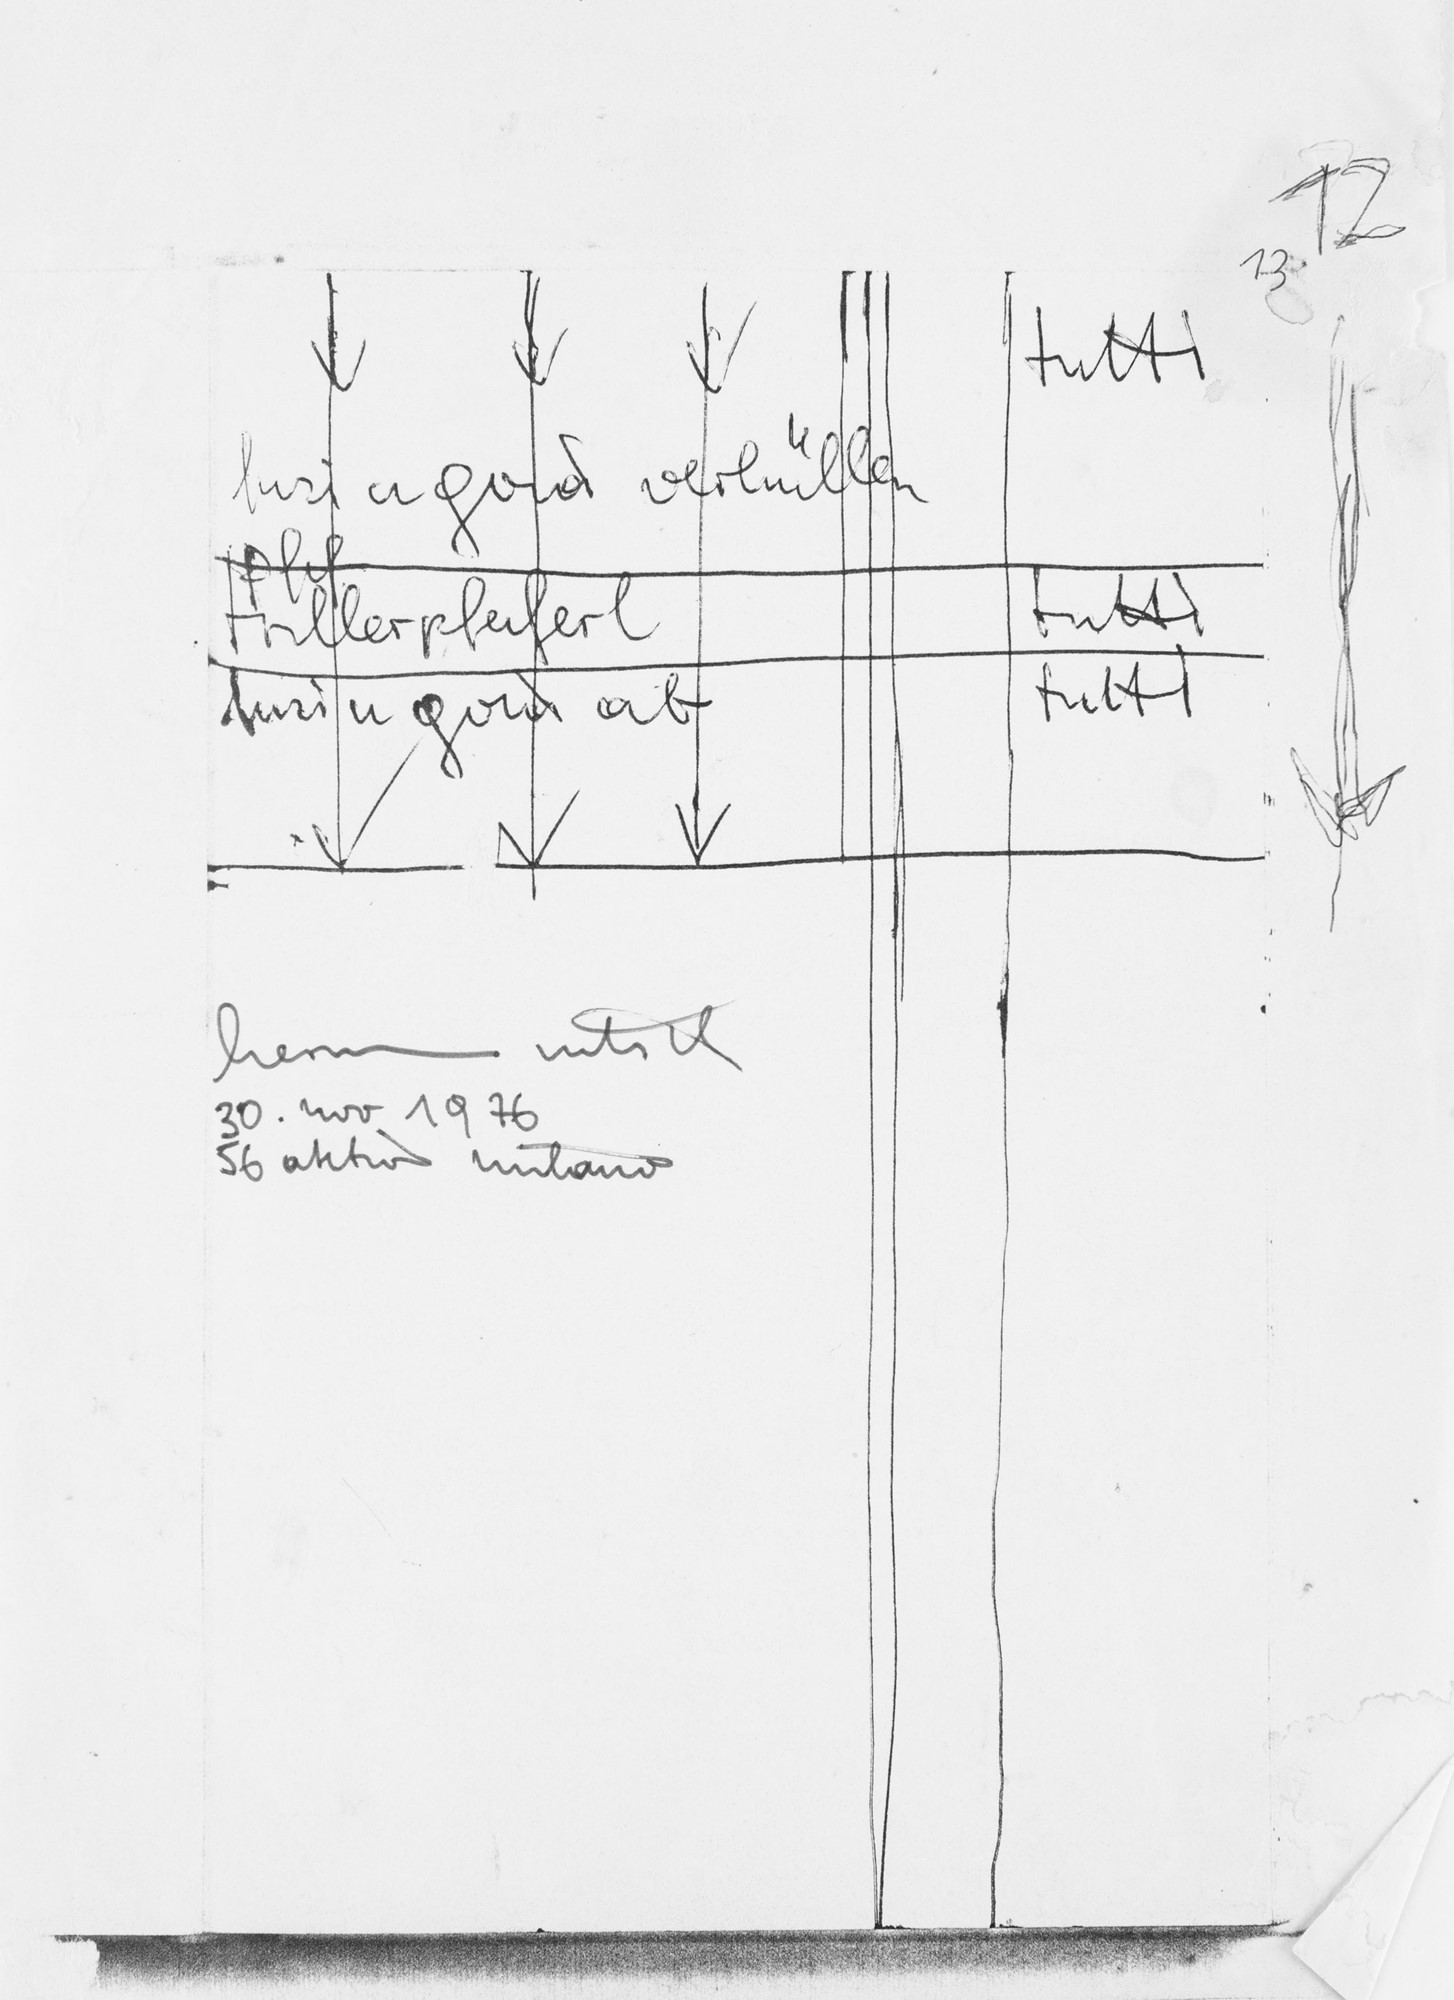 12
13
tutti
u verhüllen
pfif
trillerpfeiferl tutti
u ab tutti
hermann nitsch
30. nov 1976
56 aktion milano